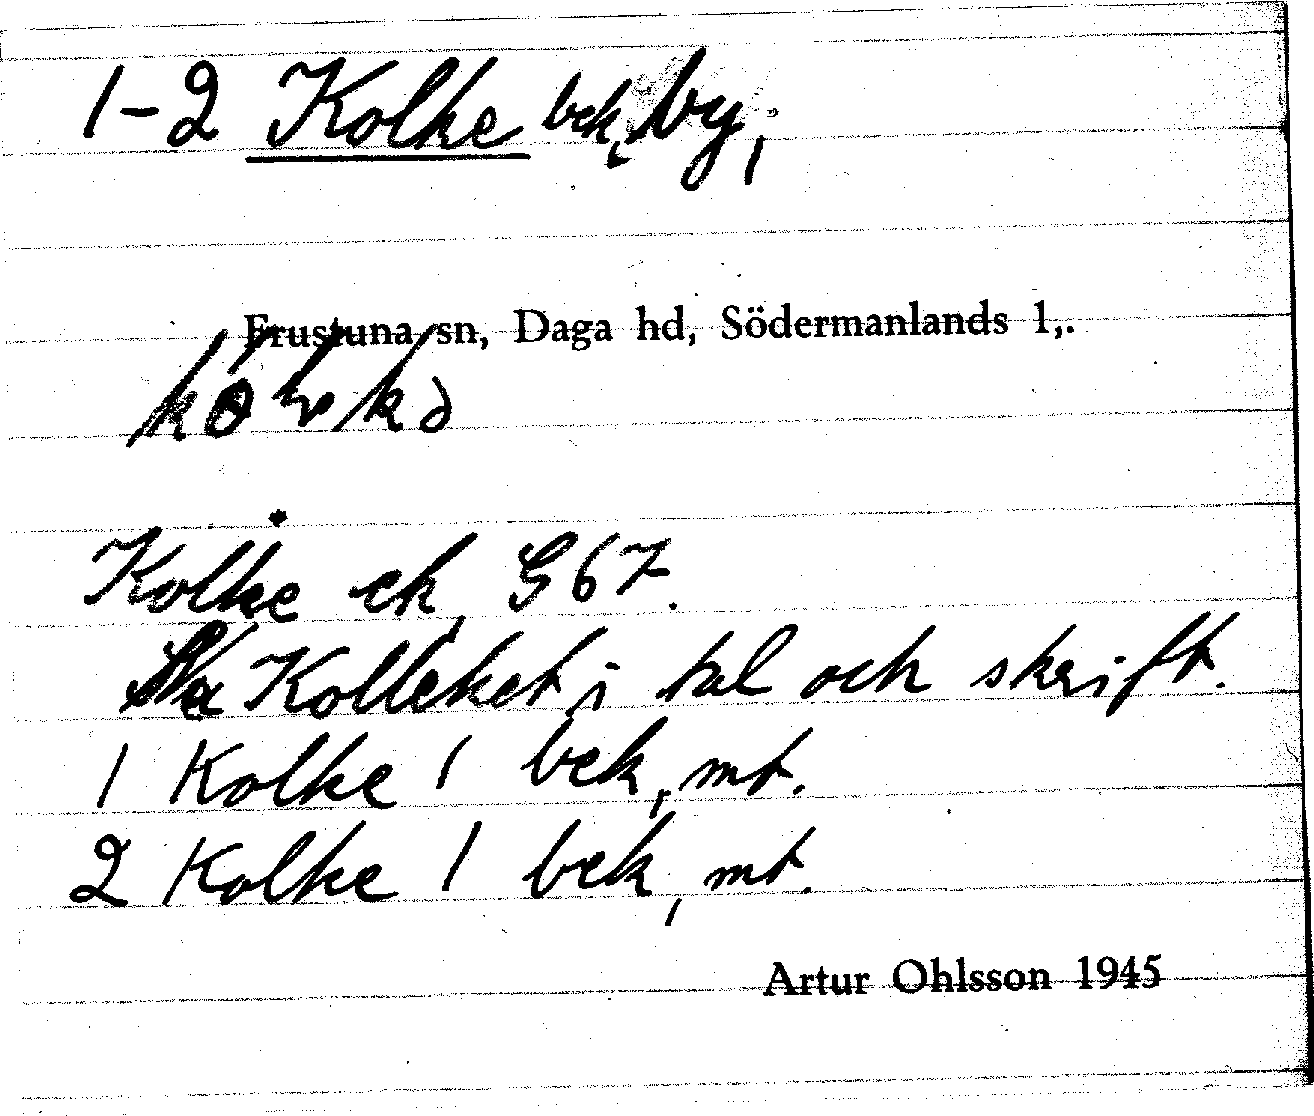 1-2 Kolke bek, by,
Frustuna sn, Daga hd, Södermanlands l,.
Kolke ek G67.
Kolleket i tal och skrift.
1 Kolke 1 bek, mt.
2 Kolke 1 bek, mt.
Artur Ohlsson 1945